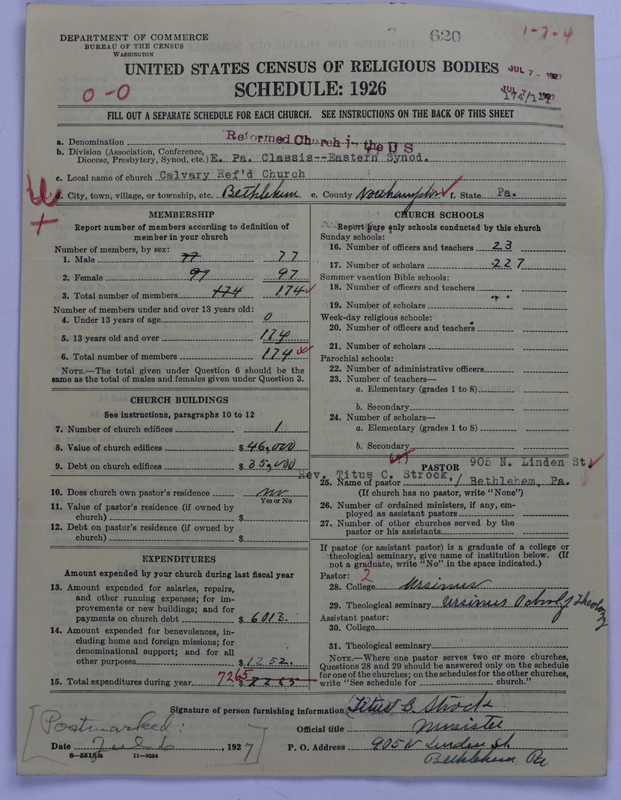 DEPARTMENT OF COMMERCE
BUREAU OF THE CENSUS
WASHINGTON
620
1-7-4
UNITED STATES CENSUS OF RELIGIOUS BODIES
JUL 7 - 1927
SCHEDULE: 1926
JUL 7 1927
174/1
0-0
FILL OUT A SEPARATE SCHEDULE FOR EACH CHURCH. SEE INSTRUCTIONS ON THE BACK OF THIS SHEET
a. Denomination Reformed Church in the U S
b. Division (Association, Conference, Diocese, Presbytery, Synod, etc.) E. Pa. Classis--Eastern Synod.
c. Local name of church Calvary Ref'd Church
d. City, town, village, or township, etc. Bethlehem e. County Northampton f. State Pa.
MEMBERSHIP
Report number of members according to definition of
member in your church
Number of members, by sex:
1. Male 77 77
2. Female 97 97
3. Total number of members 174 174
Number of members under and over 13 years old:
4. Under 13 years of age 0
5. 13 years old and over 174
6. Total number of members 174
NOTE.—The total given under Question 6 should be
same as the total of males and females given under Question 3.
CHURCH BUILDINGS
See instructions, paragraphs 10 to 12
7. Number of church edifices 1
8. Value of church edifices $ 46,000
9. Debt on church edifices $ 35,000
10. Does church own pastor's residence no
Yes or No
11. Value of pastor's residence (if owned by
church) $
12. Debt on pastor's residence (if owned by
church) $
EXPENDITURES
Amount expended by your church during last fiscal year
13. Amount expended for salaries, repairs,
and other running expenses; for im-
provements or new buildings; and for
payments on church debt $ 6013.
14. Amount expended for benevolences, in-
cluding home and foreign missions; for
denominational support; and for all
other purposes $ 1252.
15. Total expenditures during year 7265 $
CHURCH SCHOOLS
Report here only schools conducted by this church
Sunday schools:
16. Number of officers and teachers 23
17. Number of scholars 227
Summer vacation Bible schools:
18. Number of officers and teachers
19. Number of scholars
Week-day religious schools:
20. Number of officers and teachers
21. Number of scholars
Parochial schools:
22. Number of administrative officers
23. Number of teachers—
a. Elementary (grades 1 to 8)
b. Secondary
24. Number of scholars—
a. Elementary (grades 1 to 8)
b. Secondary
PASTOR 905 N. Linden St.
Rev. Titus C. Strock,
25. Name of pastor / Bethlehem, Pa.
(If church has no pastor, write "None")
26. Number of ordained ministers, if any, em-
ployed as assistant pastors
27. Number of other churches served by the
pastor or his assistants
If pastor (or assistant pastor) is a graduate of a college or
theological seminary, give name of institution below. (If
not a graduate, write "No" in the space indicated.)
Pastor: 2
28. College Ursinus
29. Theological seminary Ursinus School of Theology
Assistant pastor:
30. College
31. Theological seminary
NOTE.—Where one pastor serves two or more churches,
Questions 28 and 29 should be answered only on the schedule
for one of the churches; on the schedules for the other churches,
write "See schedule for church."
Signature of person furnishing information Titus C. Strock
Official title Minister
[Postmarked:
Date July 6, 1927]
P. O. Address 905 N Linden St.
Bethlehem, Pa
8-5518a 11-9034